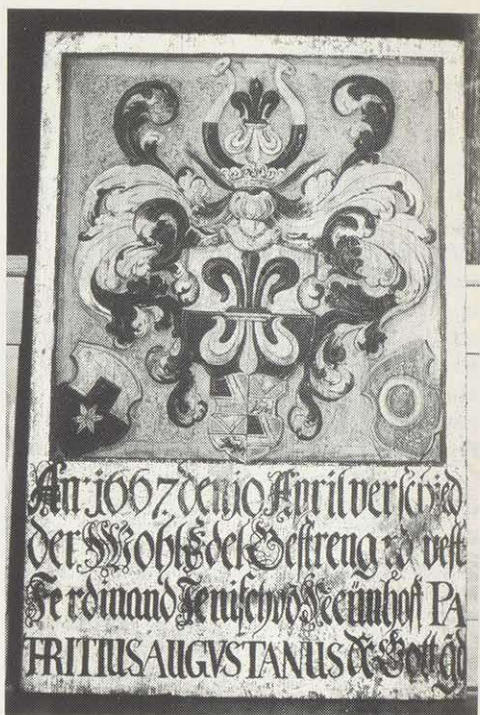 An: 1667. den 10 April verschied
der Wohl Edel Gestreng vnd vest
Ferdinand Jenisch
PA
TRITIUS AUGVSTANUS Gott